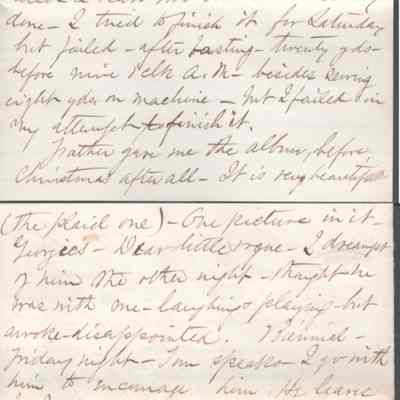 done - I tried to finish it for Saturday
but failed - after basting - twenty yds -
before nine o'clk A.M - besides sewing
eight yds. on machine - but I failed in
my attempt to finish it.
Father gave me the album, before
Christmas after all - It is very beautiful
(the plaid one) - One picture in it -
Georgie's - Dear little rogue - I dreampt
of him the other night - thought he
was with me - laughing & playing - but
awoke - disappointed. Biennial -
Friday night - Tom speaks - I go with
him to encourage him. He leave